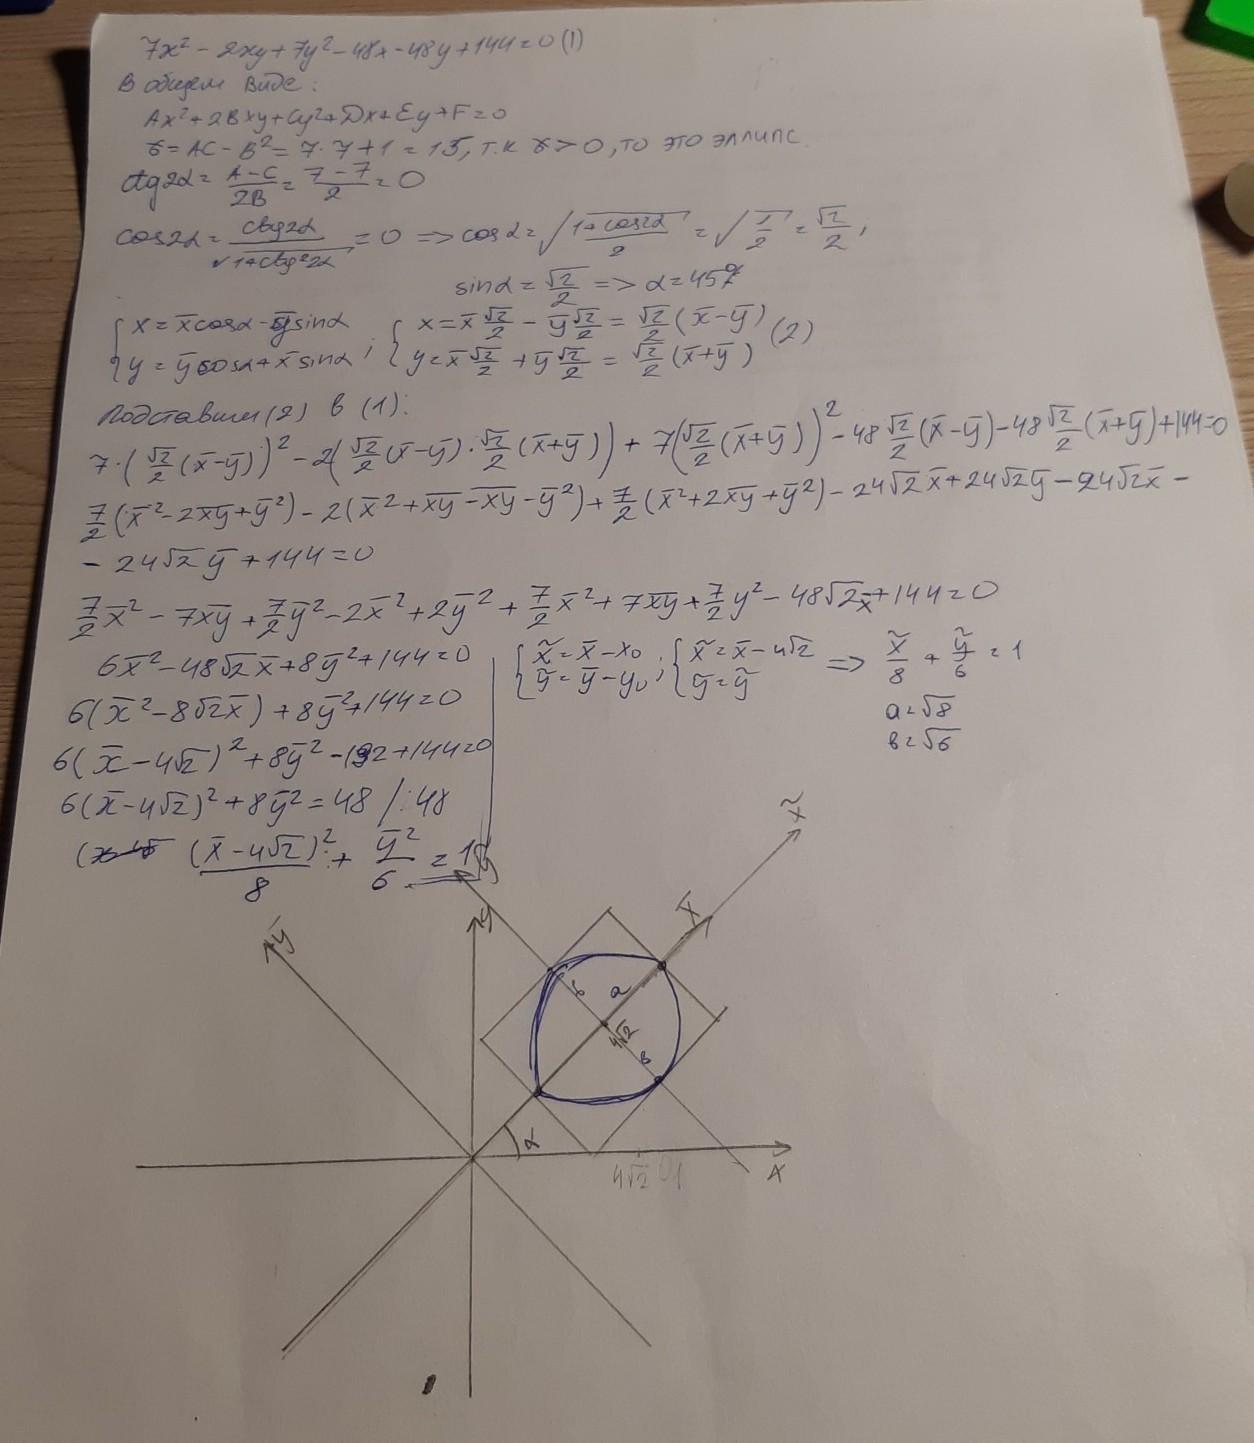 7x² - 2xy + 7y² - 48x - 48y + 144 = 0 (1)
В общем виде:
Ax² + 2Bxy + Cy² + Dx + Ey + F = 0
δ = AC - B² = 7·7 + 1 = 15, т.к δ > 0, то это эллипс.
ctg2α = (A-C)/2B = (7-7)/2 = 0
cos2α = ctg2α/√(1+ctg²2α) = 0 => cosα = √((1+cos2α)/2) = √(1/2) = √2/2,
sinα = √2/2 => α = 45°
{x = x̄cosα - ȳsinα ; {x = x̄ √2/2 - ȳ √2/2 = √2/2 (x̄-ȳ) (2)
{y = ȳcosα + x̄sinα {y = x̄ √2/2 + ȳ √2/2 = √2/2 (x̄+ȳ)
Подставим (2) в (1):
7·(√2/2 (x̄-ȳ))² - 2(√2/2 (x̄-ȳ)·√2/2 (x̄+ȳ)) + 7(√2/2 (x̄+ȳ))² - 48 √2/2 (x̄-ȳ) - 48 √2/2 (x̄+ȳ) + 144 = 0
7/2 (x̄² - 2x̄ȳ + ȳ²) - 2(x̄² + x̄ȳ - x̄ȳ - ȳ²) + 7/2 (x̄² + 2x̄ȳ + ȳ²) - 24√2 x̄ + 24√2 ȳ - 24√2 x̄ -
- 24√2 ȳ + 144 = 0
7/2 x̄² - 7x̄ȳ + 7/2 ȳ² - 2x̄² + 2ȳ² + 7/2 x̄² + 7x̄ȳ + 7/2 y² - 48√2 x̄ + 144 = 0
6x̄² - 48√2 x̄ + 8ȳ² + 144 = 0
6(x̄² - 8√2 x̄) + 8ȳ² + 144 = 0
6(x̄ - 4√2)² + 8ȳ² - 192 + 144 = 0
6(x̄ - 4√2)² + 8ȳ² = 48 /:48
(x̄ - 4√2)²/8 + ȳ²/6 = 1
{x̃ = x̄ - x₀ ; {x̃ = x̄ - 4√2 => x̃/8 + ỹ/6 = 1
{ỹ = ȳ - y₀ {ȳ = ỹ
a = √8
b = √6
x̃
ỹ
x̄
ȳ
y
б
a
4√2
в
α
4√2
x